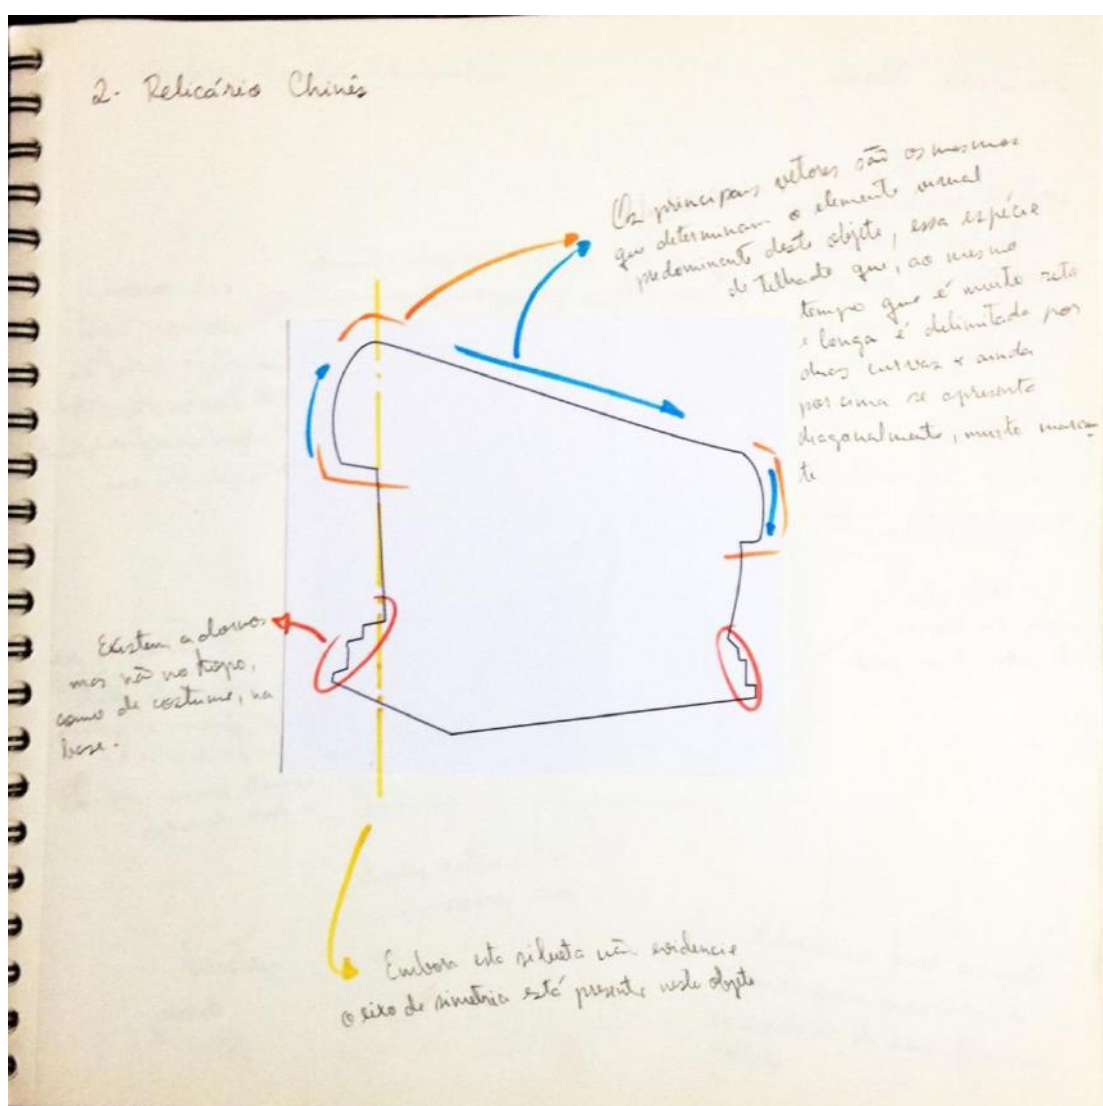 2- Relicário Chinês
Os principais vetores são os mesmos
que determinam o elemento visual
predominante deste objeto, essa espécie
de telhado que, ao mesmo
tempo que é muito reto
e longo é delimitado por
duas curvas e ainda
por cima se apresenta
diagonalmente, muito marcan-
te
Existem adornos
mas não no topo,
como de costume, na
base.
Embora esta silhueta não evidencie
o eixo de simetria está presente neste objeto